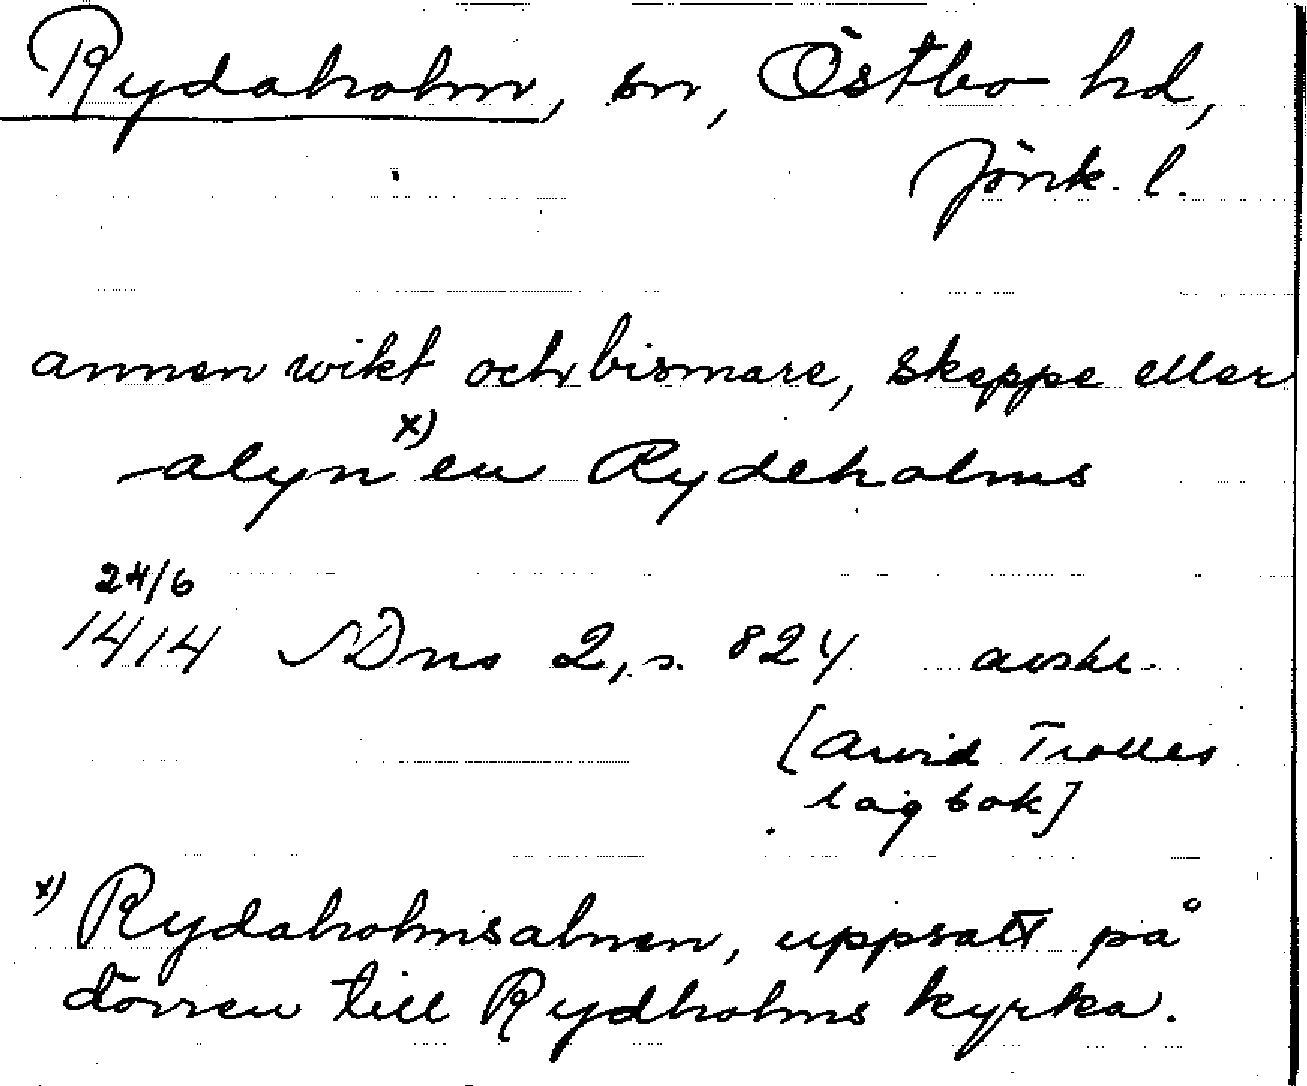 Rydaholm, sn, Östbo hd,
Jönk. l.
annen wikt och bismare, skeppe eller
alyn x) en Rydeholms
24/6
1414 SDns 2, s. 824 avskr.
[Arvid Trolles
lagbok]
x) Rydaholmsalnen, uppsatt på
dörren till Rydholms kyrka.